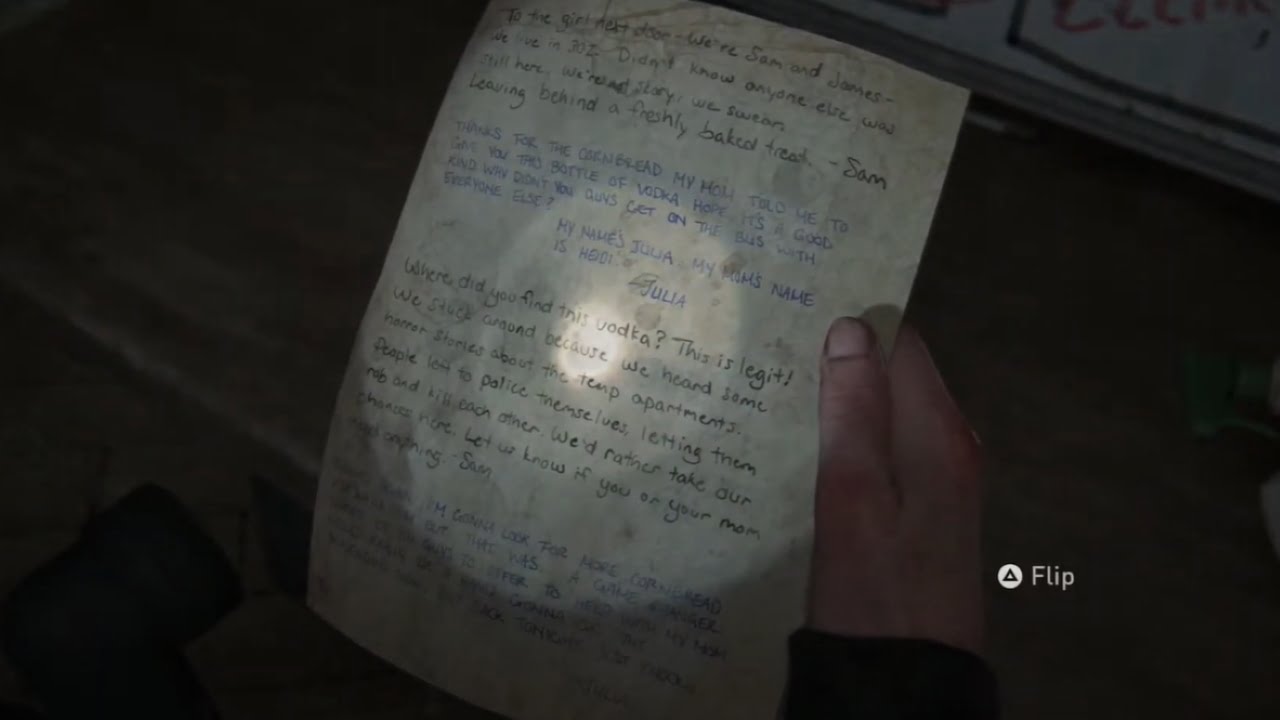 To the girl next door - We're Sam and James -
We live in 302. Didn't know anyone else was
still here. We're not scary, we swear.
Leaving behind a freshly baked treat. - Sam
THANKS FOR THE CORNBREAD MY MOM TOLD ME TO
GIVE YOU THIS BOTTLE OF VODKA HOPE IT'S A GOOD
KIND WHY DIDN'T YOU GUYS GET ON THE BUS WITH
EVERYONE ELSE?
MY NAME'S JULIA. MY MOM'S NAME
IS HEIDI.
JULIA
Where did you find this vodka? This is legit!
We stuck around because we heard some
horror stories about the temp apartments.
People left to police themselves, letting them
rob and kill each other. We'd rather take our
chances here. Let us know if you or your mom
need anything. - Sam
I'M GONNA LOOK FOR MORE CORNBREAD
BUT THAT WAS A GAME CHANGER
GUYS TO OFFER TO HELP WITH MY MOM
GONNA GO OUT
BACK TONIGHT JUST KNOCK
JULIA
Flip